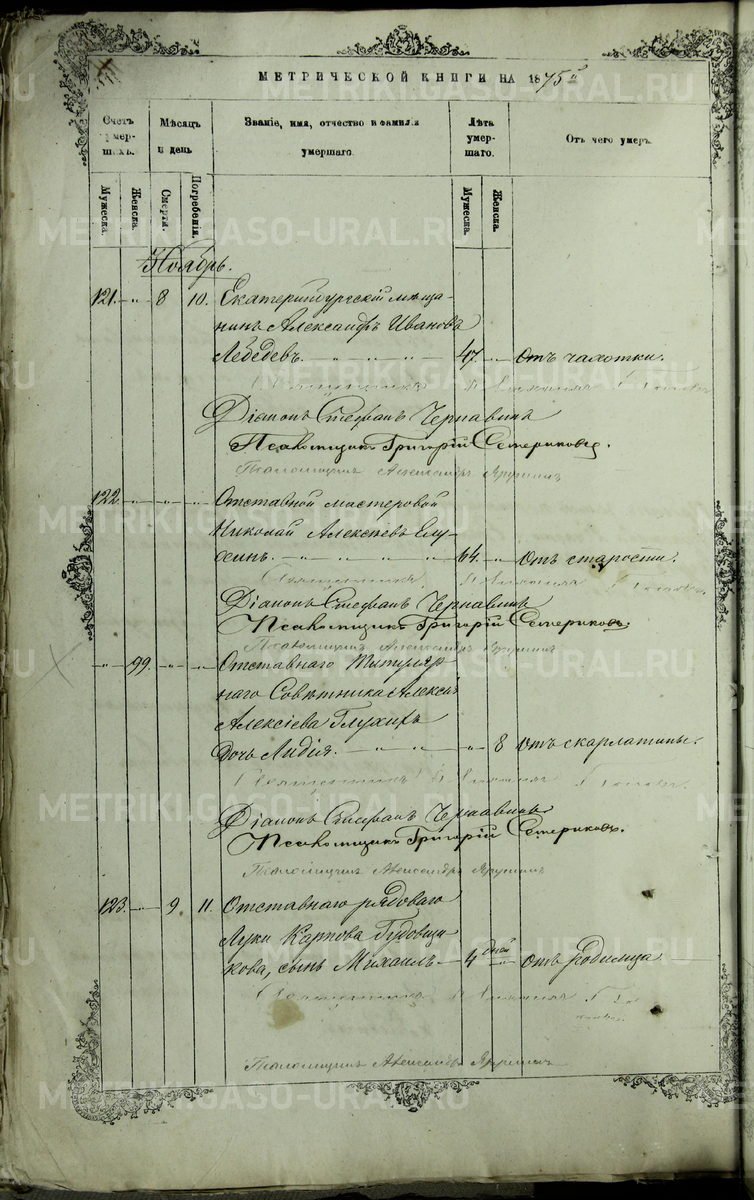 МЕТРИЧЕСКОЙ КНИГИ НА 1875й
Счетъ умер- шихъ. Мѣсяцъ и день Званіе, имя, отчество и фамилія умершаго. Лѣта умер- шаго. Отъ чего умеръ.
Мужеска. Женска. Смерти. Погребенія. Мужеска. Женска.
Ноябрь.
121. - " 8 10. Екатеринбургскій мѣща-
нинъ Александръ Ивановъ
Лебедевъ. 47. " Отъ чахотки.
Священникъ
Діаконъ Стефанъ Чернавинъ
Псаломщикъ Григорій Семериковъ.
Псаломщикъ Александръ
122. Отставной мастеровой
Николай Алексѣевъ Елу-
хинъ. 64. " Отъ старости.
Священникъ
Діаконъ Стефанъ Чернавинъ
Псаломщикъ Григорій Семериковъ.
Псаломщикъ Александръ
" 99. Отставнаго Титуляр-
наго Совѣтника Алексѣя
Алексіева Глухихъ
дочь Лидія. " 8 Отъ скарлатины.
Священникъ
Діаконъ Стефанъ Чернавинъ
Псаломщикъ Григорій Семериковъ.
Псаломщикъ Александръ
123. " 9. 11. Отставнаго рядоваго
Луки Карпова
сынъ Михаилъ 4 дней " отъ родимца
Священникъ
Псаломщикъ Александръ
METRIKI.GASO-URAL.RU